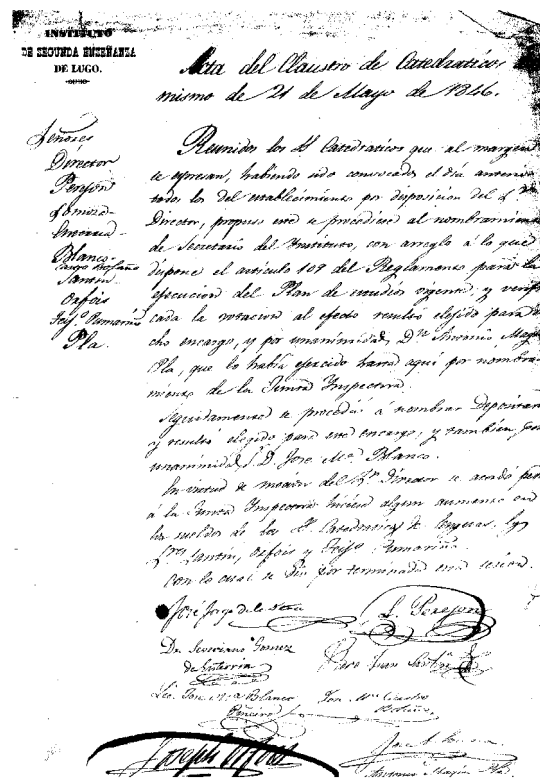 INSTITUTO
DE SEGUNDA ENSEÑANZA
DE LUGO.
Acta del Claustro de Catedraticos
mismo de 21 de Mayo de 1846.
Señores
Director
Perejon
Blanco
Santin
Orfois
Feijó Pumariño
Pla.
Reunidos los Sres Catedraticos que al margen
se espresan, habiendo sido convocados el dia anterior
todos los del establecimiento por disposicion del Sr
Director, propuso este se procediese al nombramiento
de Secretario del Instituto, con arreglo à lo que
dispone el articulo 109 del Reglamento para la
ejecucion del Plan de estudios vigente, y verifi
cada la votacion al efecto resultó elejido para di
cho encargo, y por unanimidad, Dn Antonio
Pla, que lo habia ejercido hasta aqui por nombra
miento de la Junta Inspectora.
Seguidamente se procedió à nombrar Depositario
y resultó elegido para este encargo, y tambien por
unanimidad, D. José Ma Blanco.
In virtud de mocion del Sr Director se acordó
à la Junta Inspectora hiciese algun aumento en
los sueldos de los Sres Catedraticos de lenguas, los
Sres Santin, Orfois y Feijó Pumariño.
Con lo cual se dió por terminada esta sesion.
José Jorge de la
L. Perejon
Dr. Severiano Gomez
Juan Santin
Lic. José Ma Blanco
José Ma
Joseph Orfois
Antonio